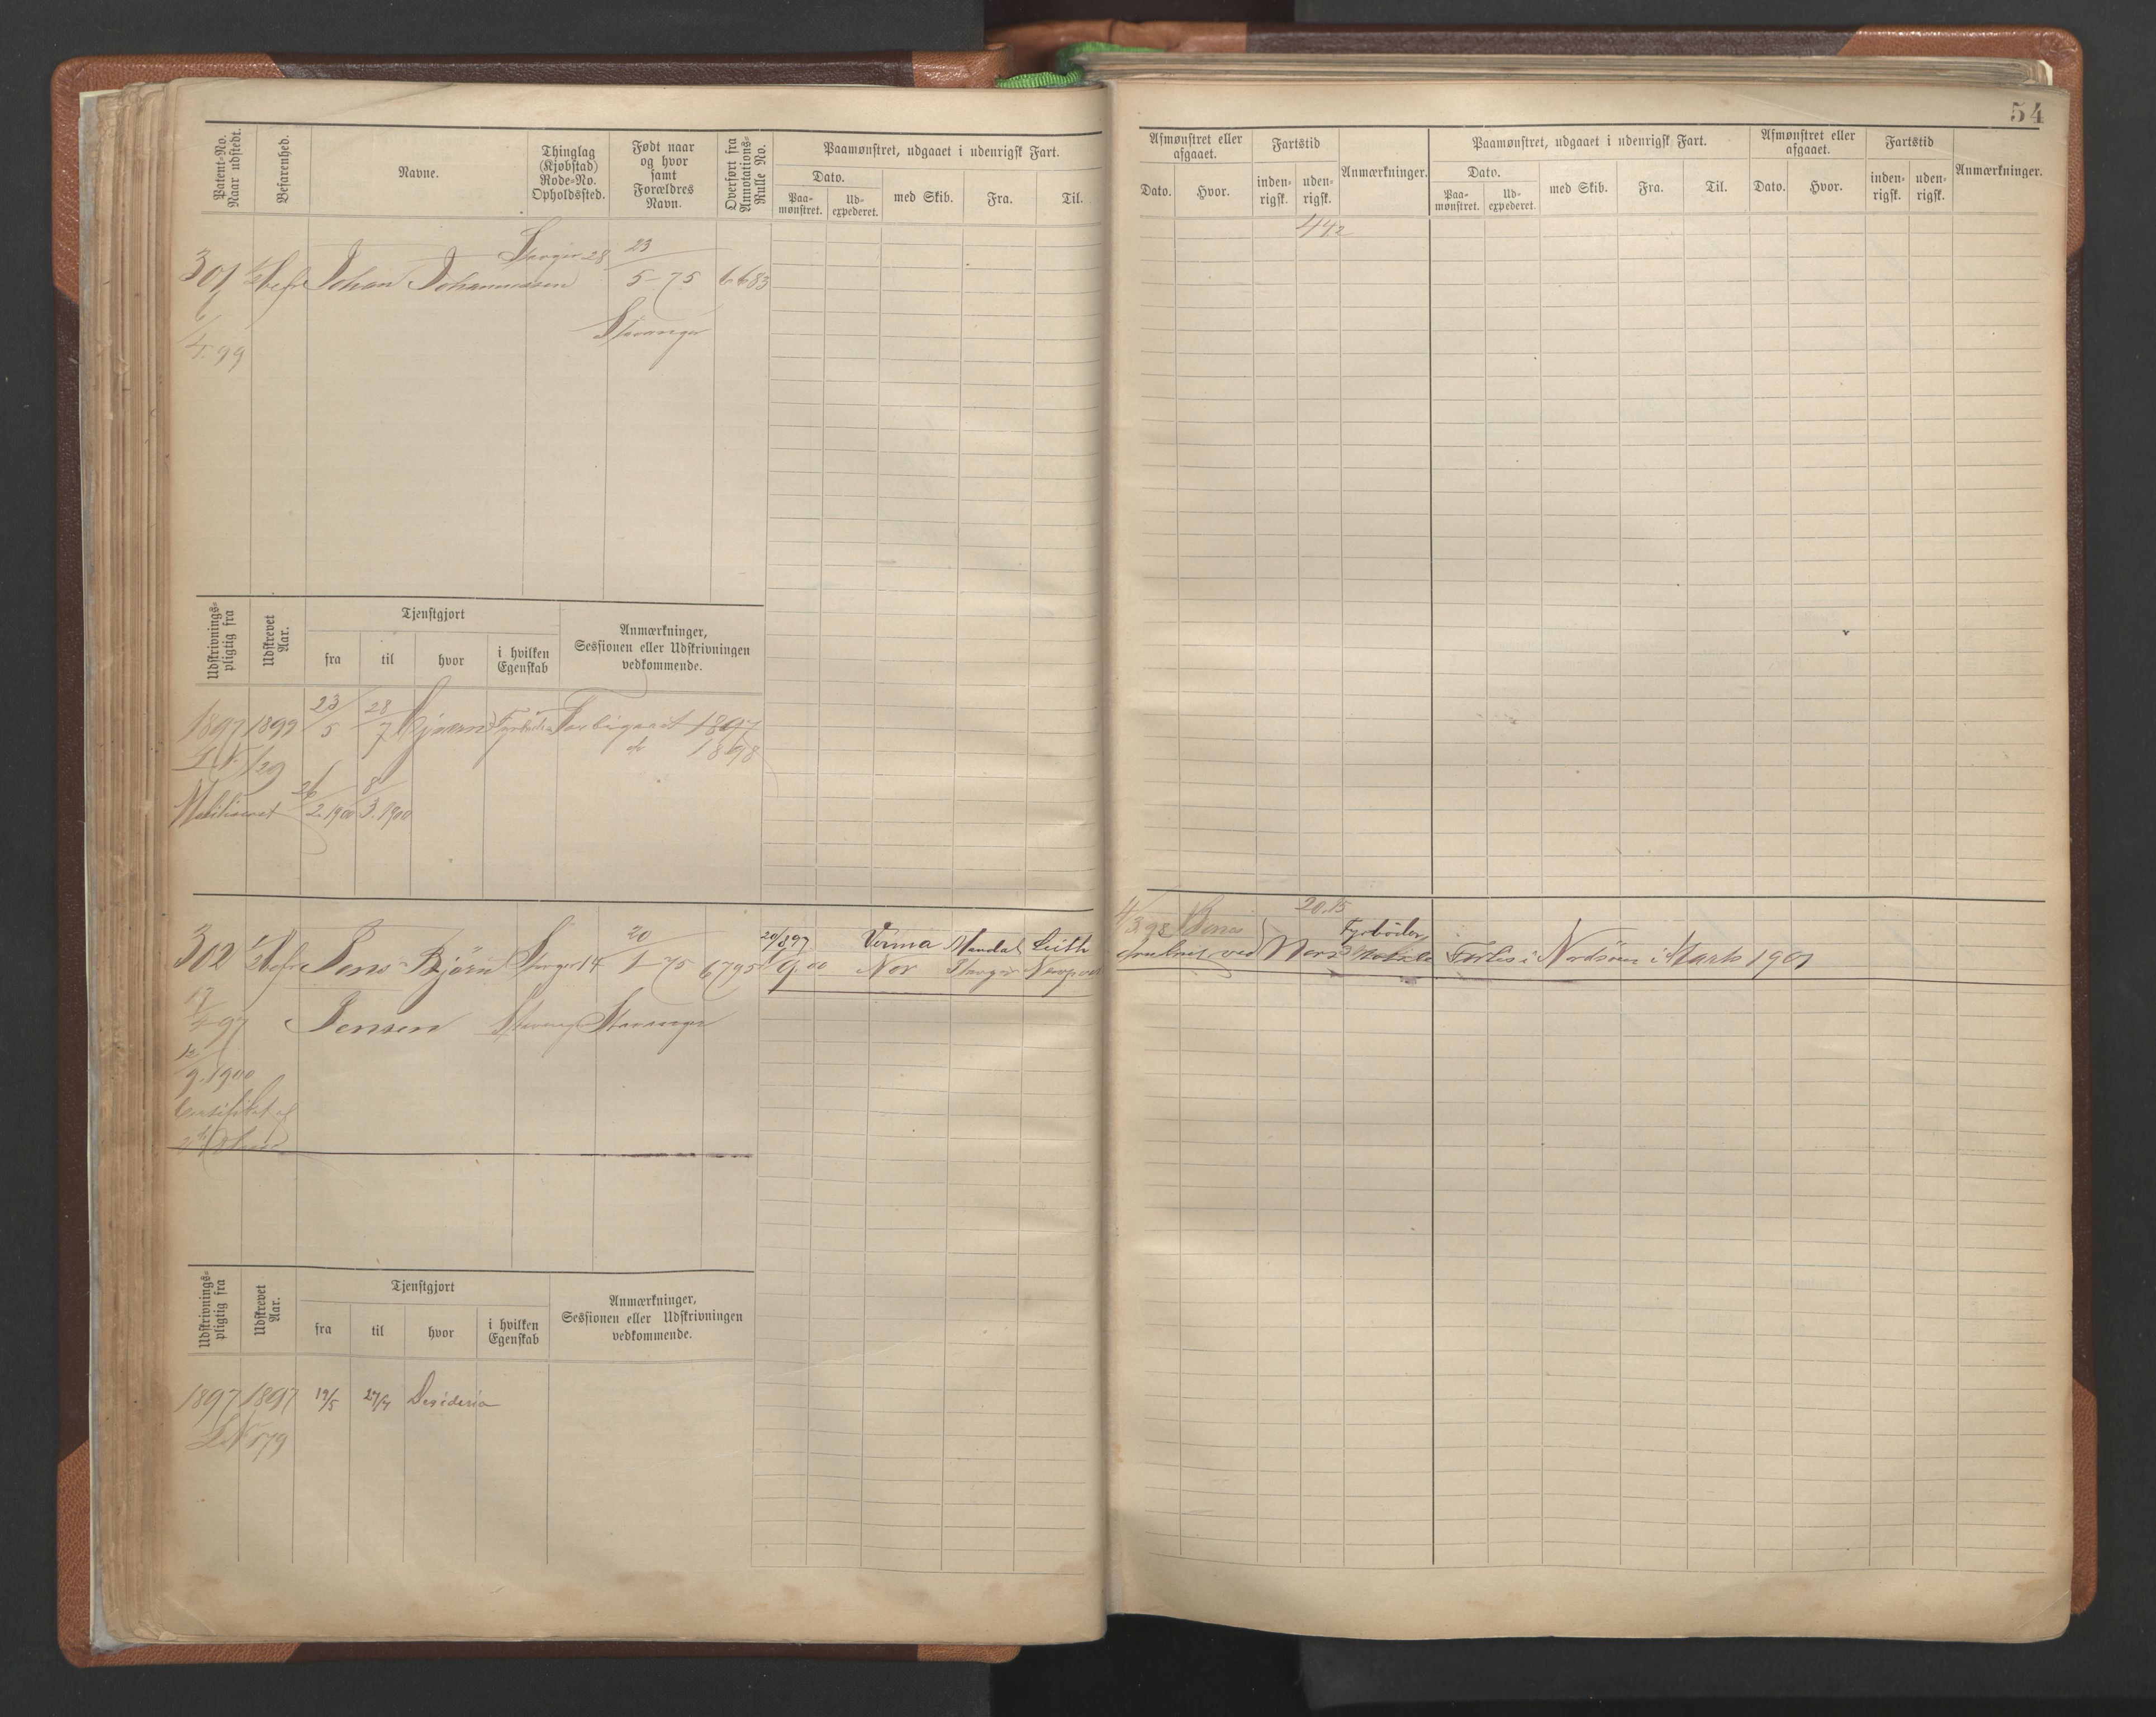 54
Patent-No. Naar udstedt.
Befarenhed.
Navne.
Thinglag (Kjøbstad) Rode-No. Opholdssted.
Født naar og hvor samt Forældres Navn.
Overført fra Annotations-Rulle No.
Paamønstret, udgaaet i udenrigsk Fart.
Dato.
Paa-mønstret.
Ud-expederet.
med Skib.
Fra.
Til.
Afmønstret eller afgaaet.
Dato.
Hvor.
Fartstid
inden-rigsk.
uden-rigsk.
Anmærkninger.
Paamønstret, udgaaet i udenrigsk Fart.
Dato.
Paa-mønstret.
Ud-expederet.
med Skib.
Fra.
Til.
Afmønstret eller afgaaet.
Dato.
Hvor.
Fartstid
inden-rigsk.
uden-rigsk.
Anmærkninger.
301 Johan Johannessen 28 23/5-75 6683
Stavanger
6/4.99
Udskrivnings-pligtig fra
Udskrevet Aar.
Tjenstgjort
fra
til
hvor
i hvilken Egenskab
Anmærkninger, Sessionen eller Udskrivningen vedkommende.
1897 1899 23/5 28/7 1897
do 1898
26/2.1900 8/3.1900
302 Jens Bjørn 14 20/1-75 6795 20/8.97 Verma Mandal Leith
9.00 Nor
Fyrbøder
Forlis i Nordsøen i Marts 1901
Jensen Stavanger
17/4 97
12/9.1900
Certifikat
Udskrivnings-pligtig fra
Udskrevet Aar.
Tjenstgjort
fra
til
hvor
i hvilken Egenskab
Anmærkninger, Sessionen eller Udskrivningen vedkommende.
1897 1897 19/5 27/7 Desideria
179